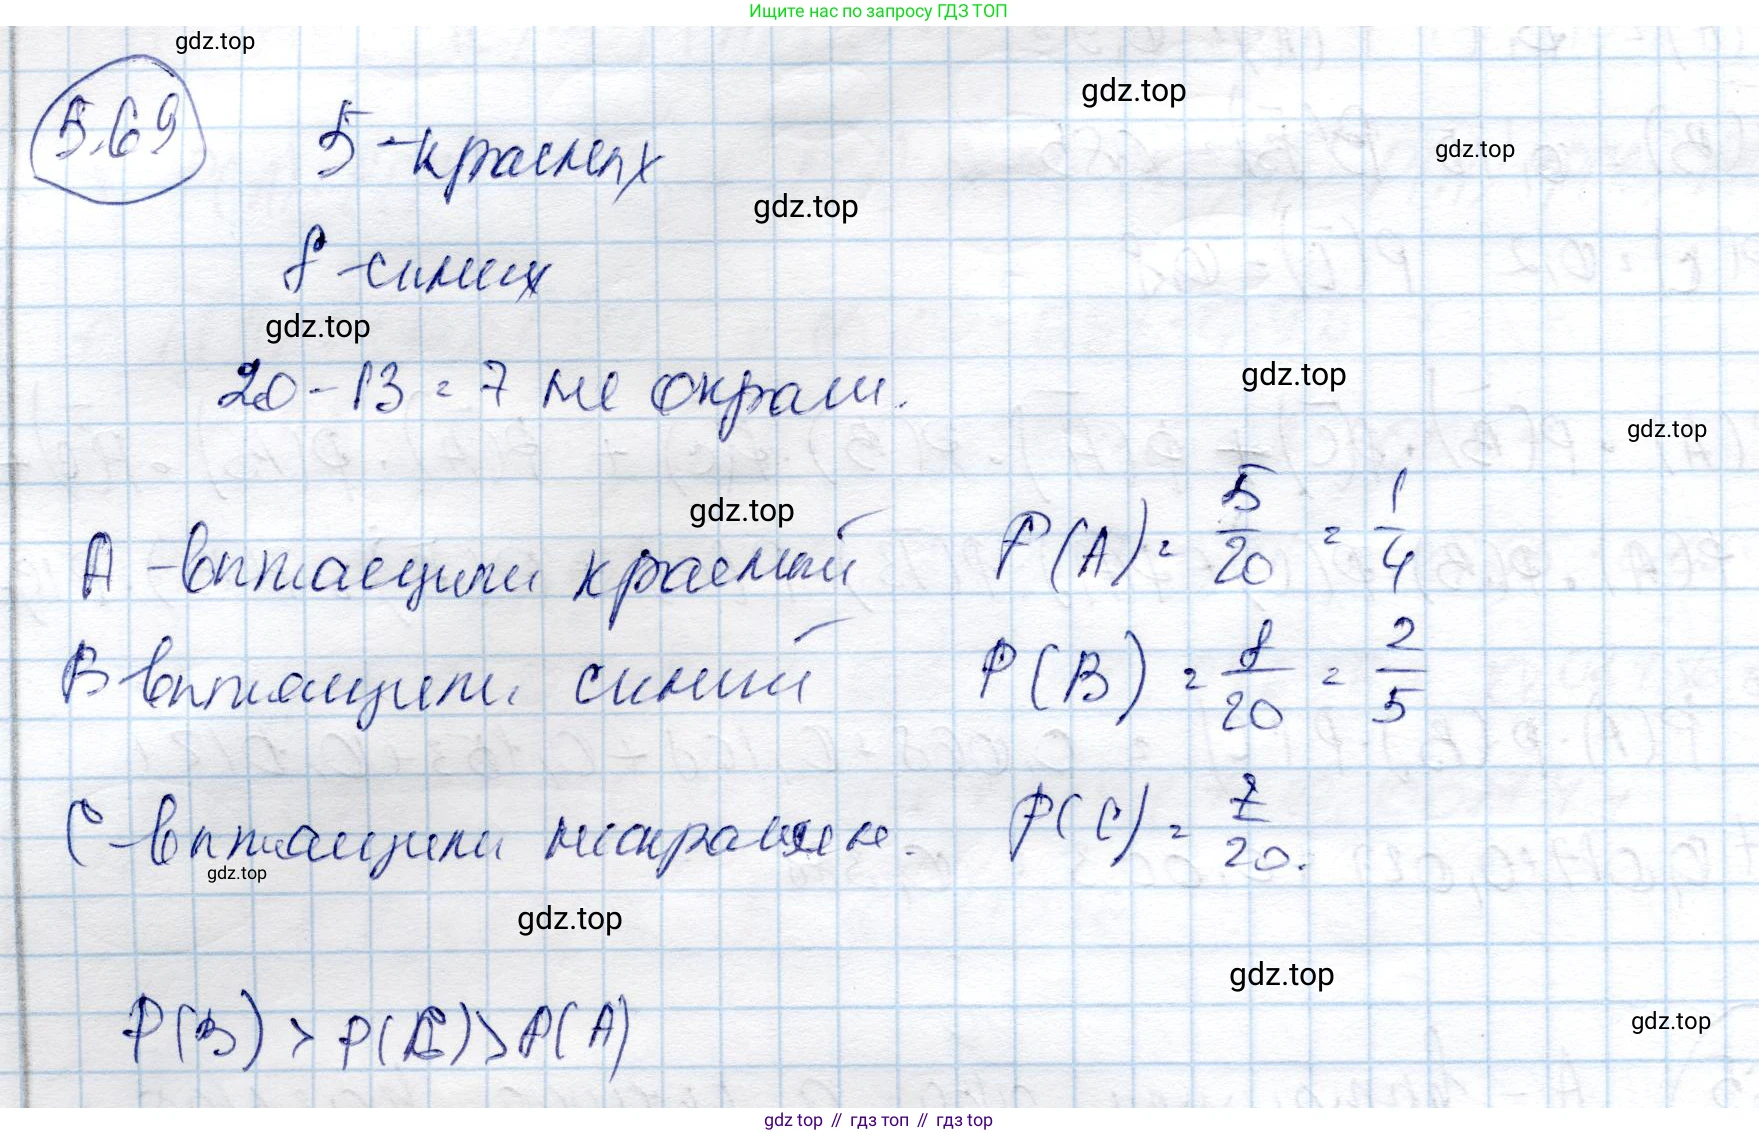 Ищите нас по запросу ГДЗ ТОП
gdz.top
5.69
gdz.top
5 - красных
gdz.top
gdz.top
8 - синих
gdz.top
20 - 13 = 7 не окраш.
gdz.top
gdz.top
gdz.top
A - вытащили красный P(A) = 5/20 = 1/4
B вытащили синий P(B) = 8/20 = 2/5
C - вытащили неокрашен. P(C) = 7/20.
gdz.top
gdz.top
gdz.top
P(B) > P(C) > P(A)
gdz.top
gdz.top // гдз топ // гдз top